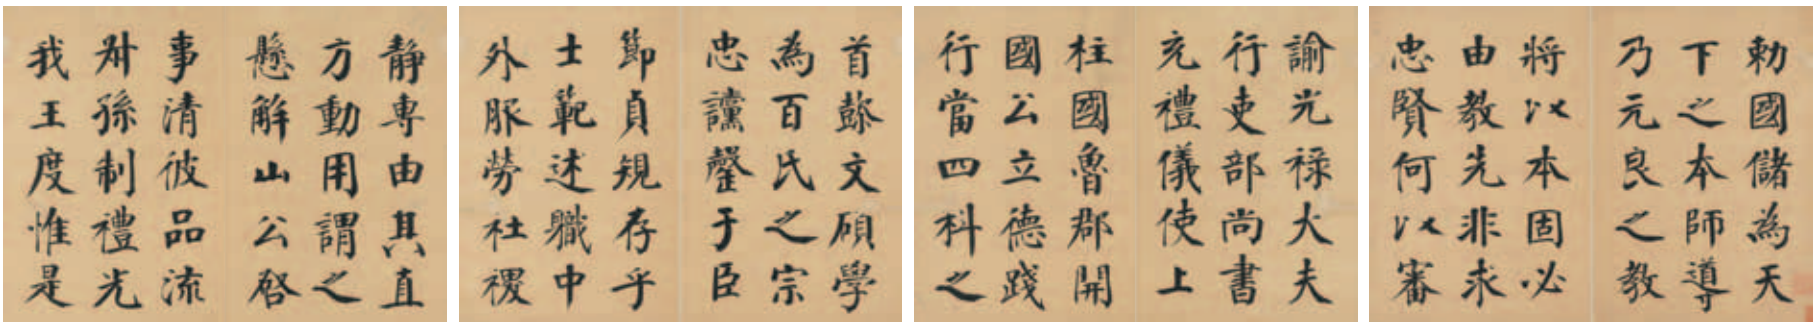 勅國儲為天
下之本師導
乃元良之教
將以本固必
由教先非求
忠賢何以審
諭光祿大夫
行吏部尚書
充禮儀使上
柱國魯郡開
國公立德踐
行當四科之
首懿文碩學
為百氏之宗
忠讜罄于臣
節貞規存乎
士範述職中
外服勞社稷
静專由其直
方動用謂之
懸解山公啓
事清彼品流
叔孫制禮光
我王度惟是